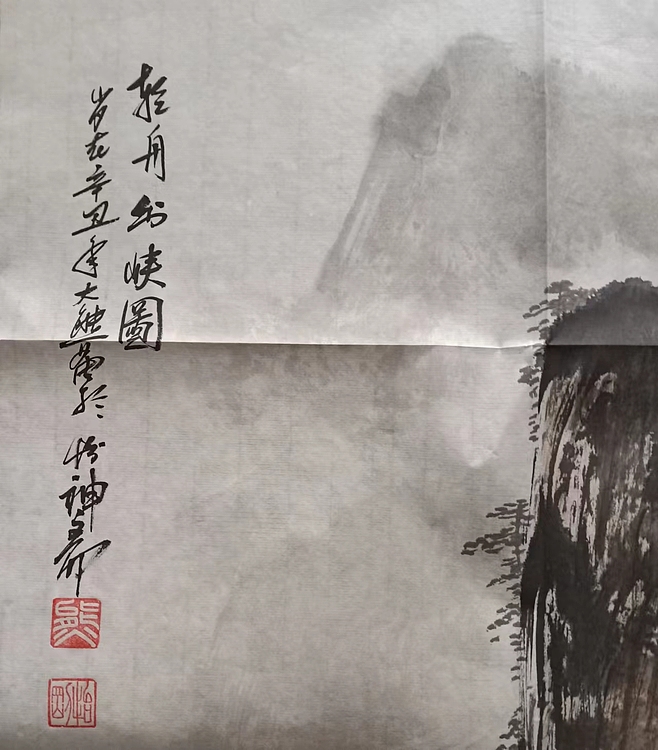 轻舟出峡圖
岁在辛丑年大熊画於怡神斋
熊